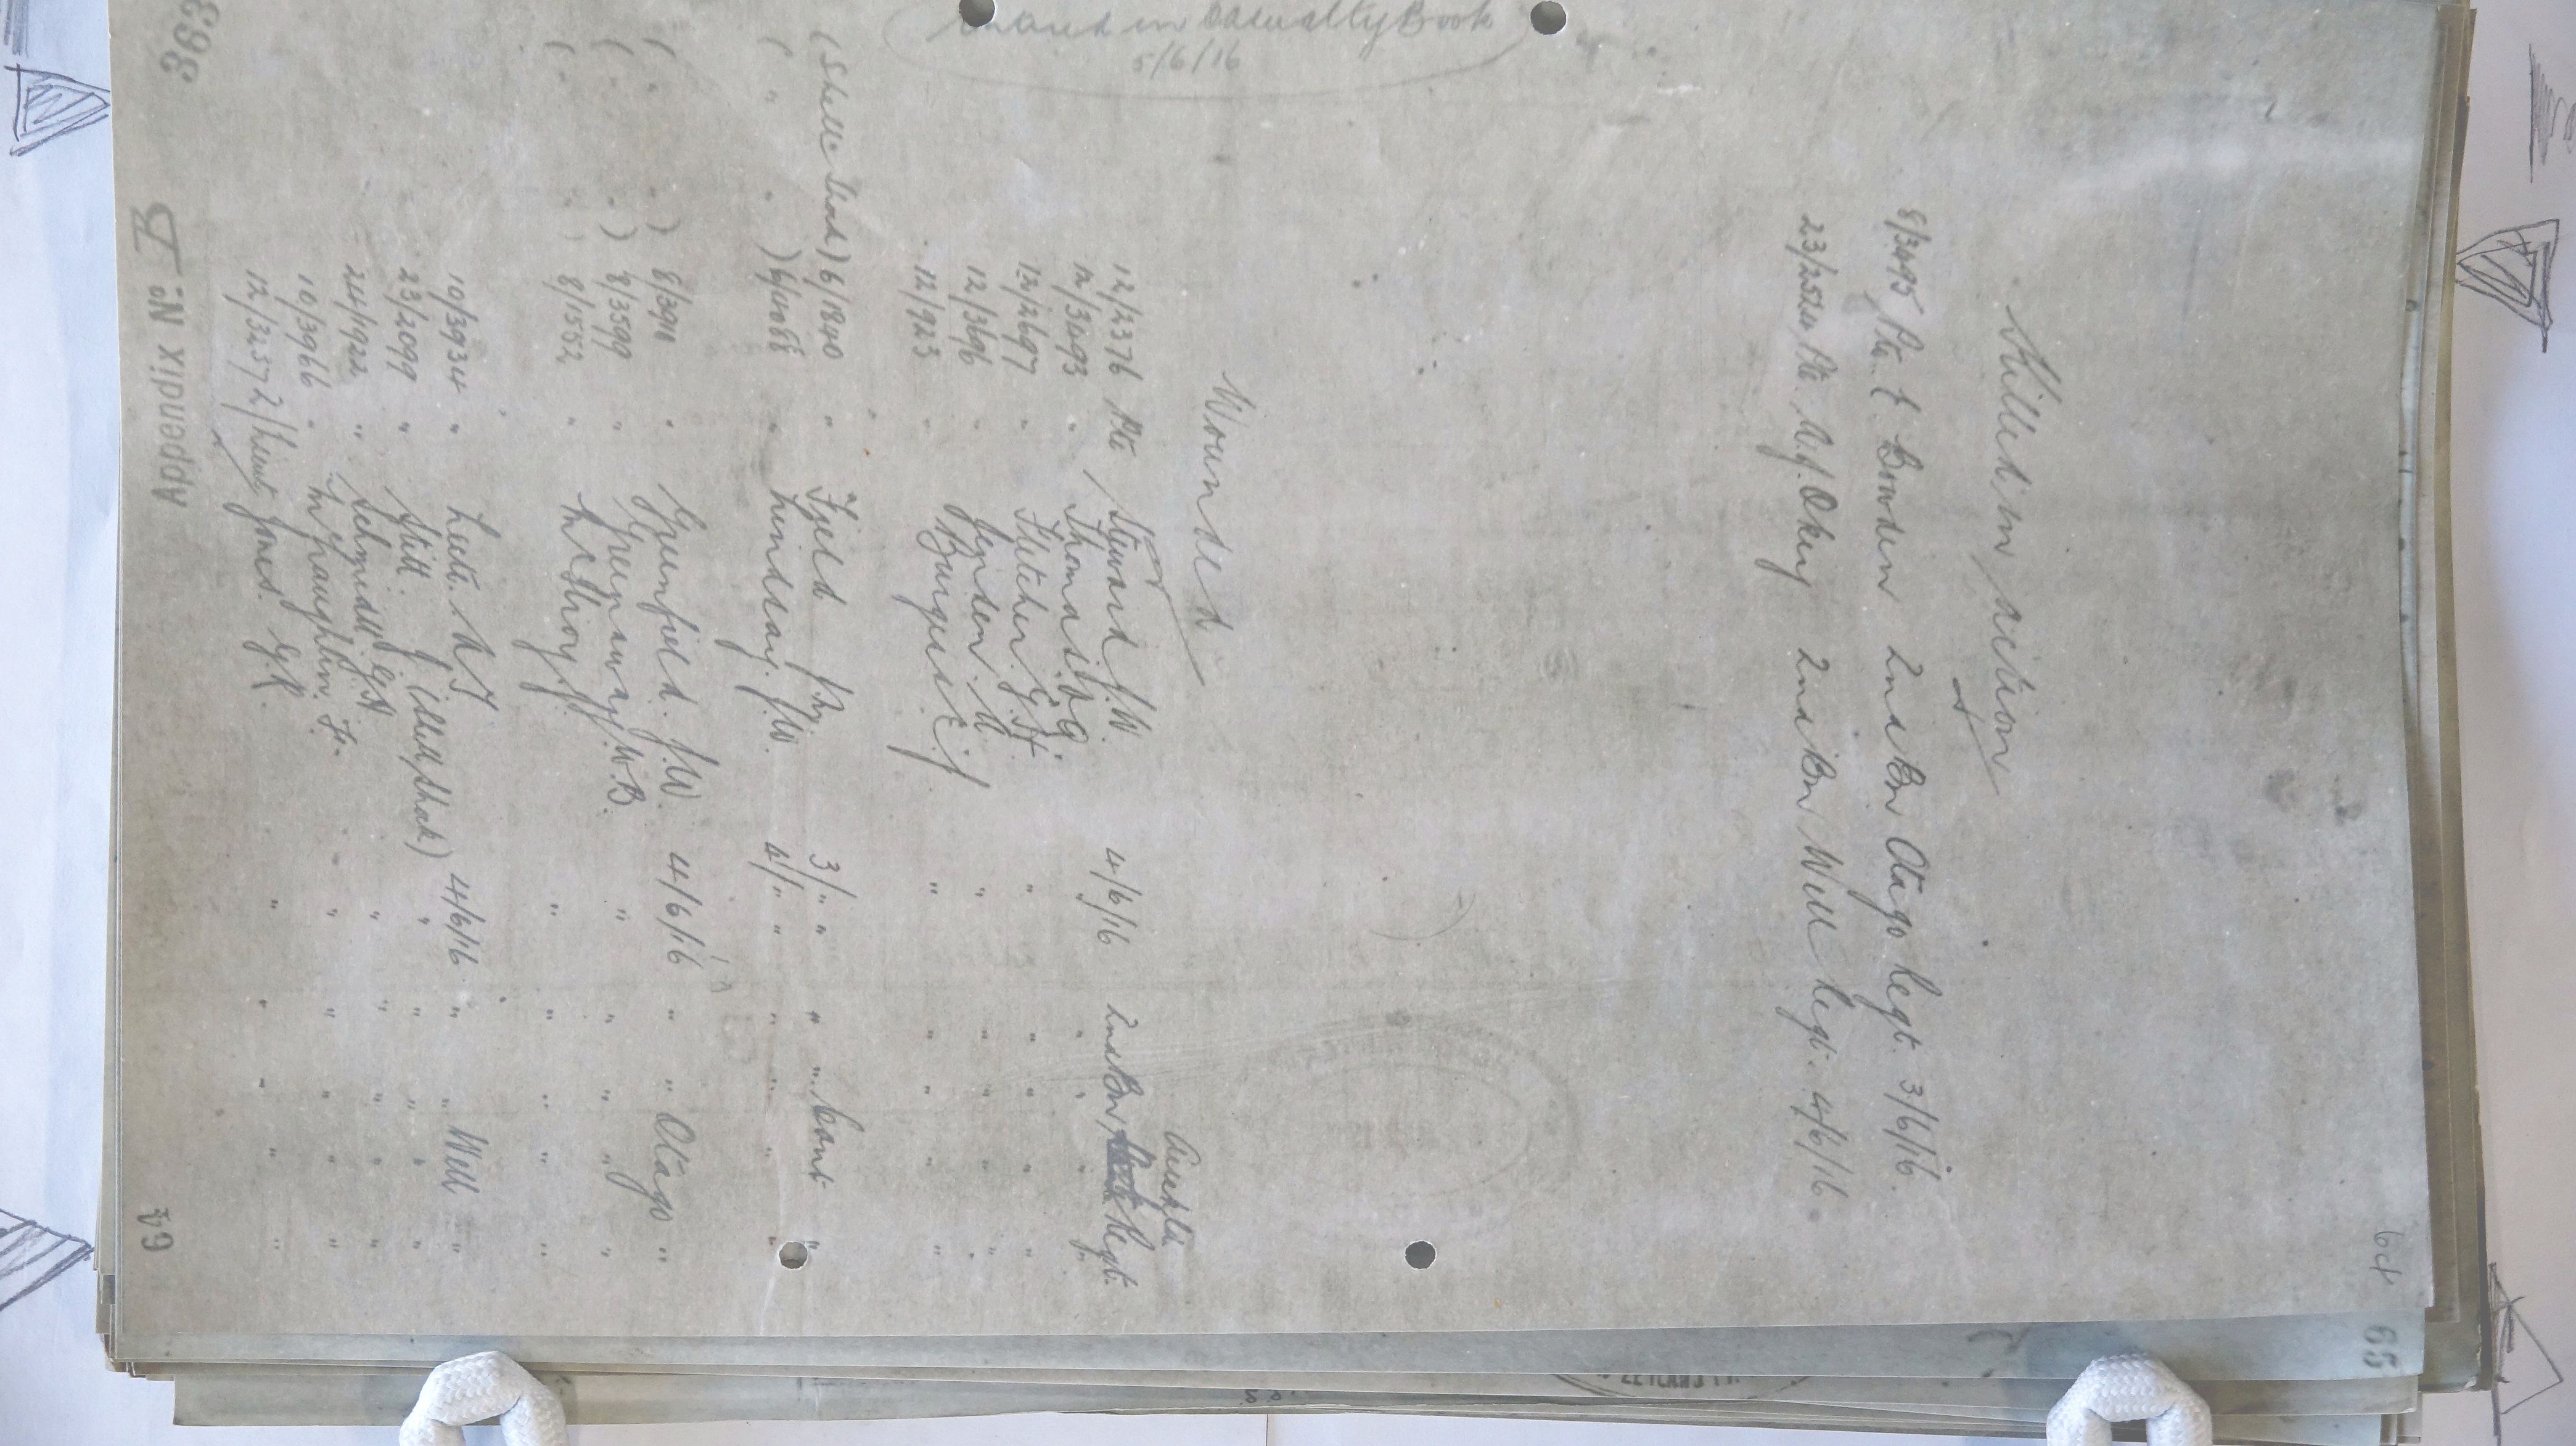 64
Killed in action
8/3493 Pte. E. Bowden 2nd Bn Otago Regt. 3/6/16.
23/2524 Pte. A.J. Okey 2nd Bn Well Regt. 4/6/16.
Wounded
Auckld
12/2376 Pte Steward J.W. 4/6/16 2nd Bn Regt.
12/3493 " Thomas. D.G. " " "
12/2697 " Fletcher G.H. " " " "
12/3696 " Jensen. A. " " " "
12/923 " Burgess E.J. " " " "
(Shell Shock) 6/1840 " Fjeld 3/" " " " Cant "
( " " ) 6/4088 " Lindsay. J.W. 4/" " " " " "
( " " ) 8/3910 " Greenfield. J.W. 4/6/16 " " Otago "
( " " ) 8/3599 " Greenaway J.W.B. " " " " "
( " " ) 8/1552 " McIlroy J. " " " " "
10/3934 " Leete. A.J 4/6/16 " " Well "
23/2099 " Stitt. J (Shell Shock) " " " " "
24/1922 " Schmidt G.A " " " " "
10/3966 " McNaughton. F. " " " " "
12/3257 2/Lieut Jones. G.P. " " " " "
Entered in Casualty Book
5/6/16
Appendix No. B
363
64
65